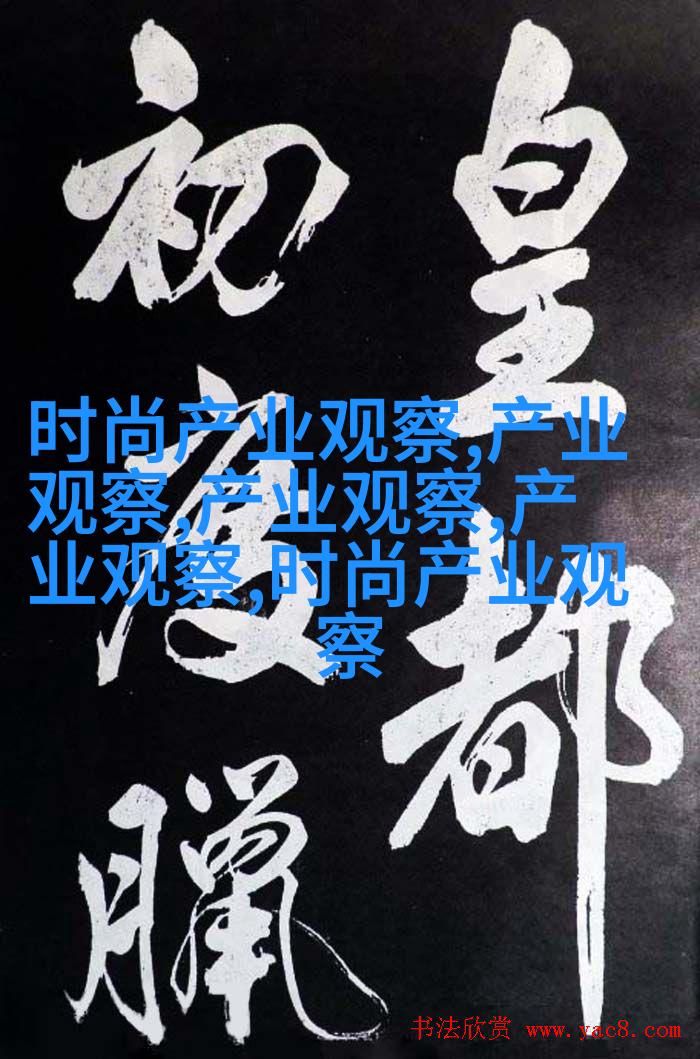 皇都
初度臘
时尚产业观察,产业
观察,产业观察,产
业观察,时尚产业观
察
书法欣赏 www.yac8.com